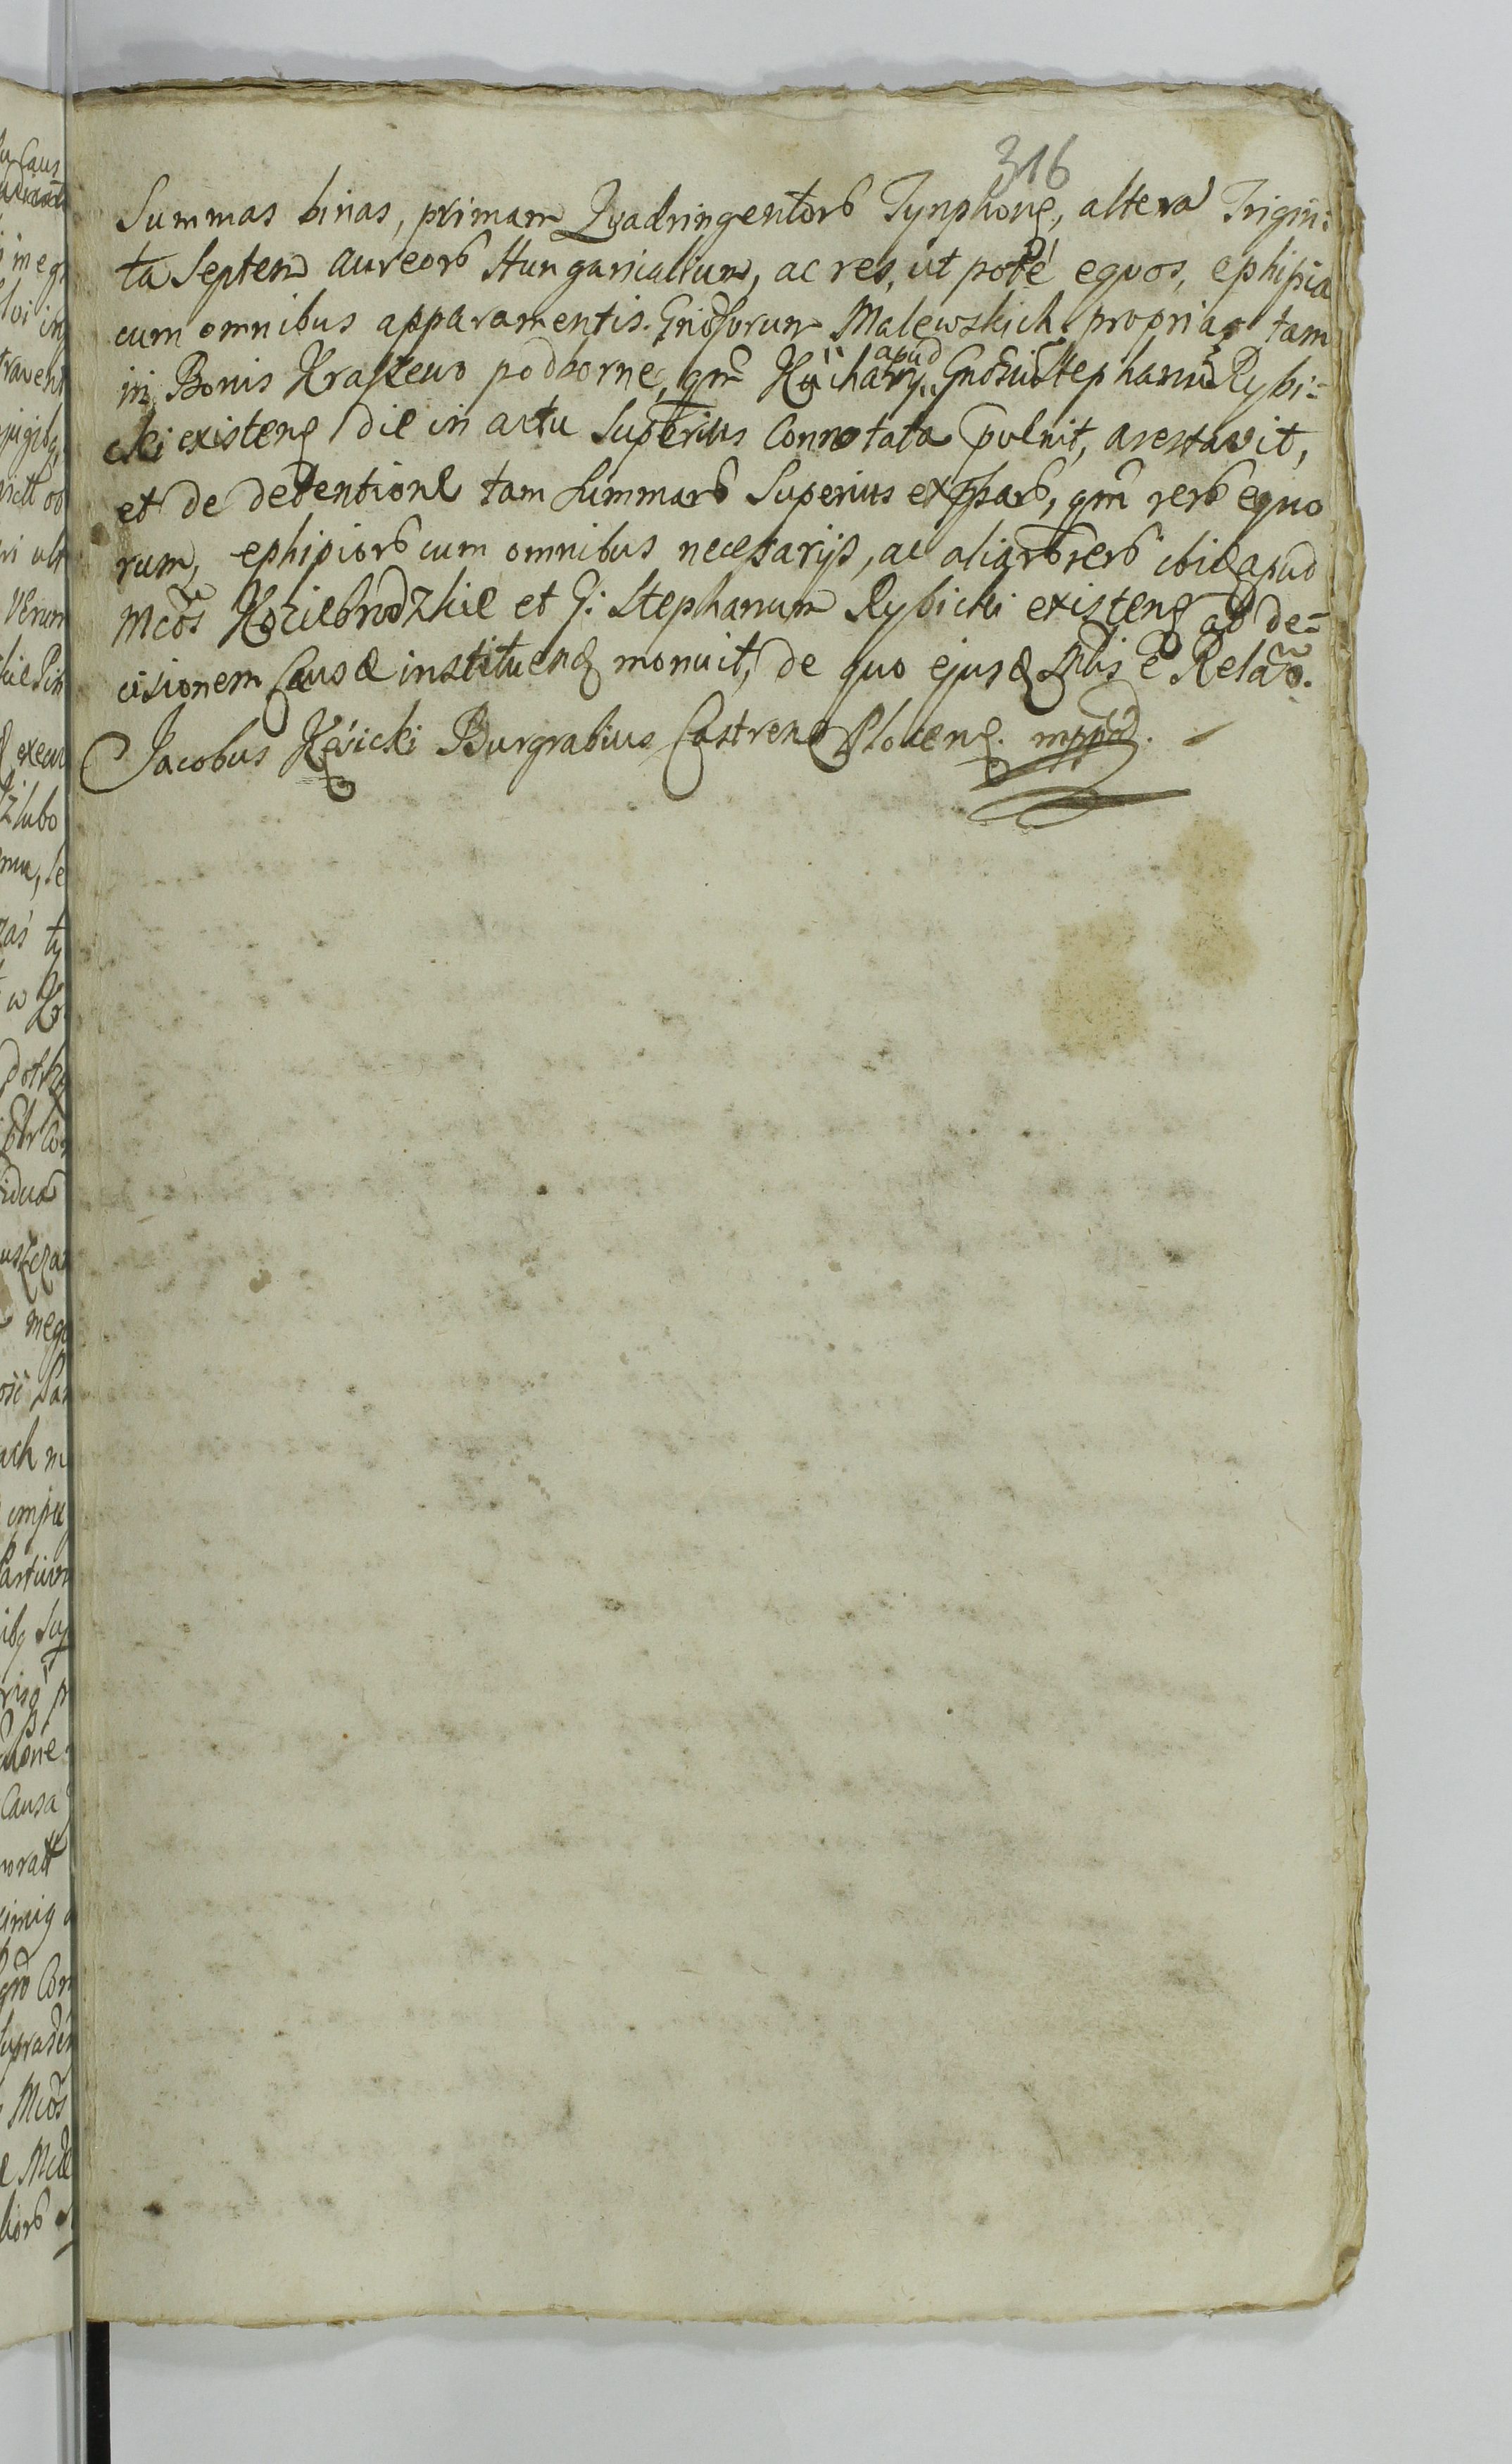 316
Summas binas, primam Quadringentorb Tynphong, altera Trigin:
ta Septem aureorb Hungaricalium, ac res, ut poté equos, ephipia
cum omnibus apparamentis. Gnosorum Malewskich proprias tam
in Bonis Kraszewo podborne, qm Kuchary, apud Gnosum Stephanum Rybi:
cki existeng die in actu Superius Connotata pulnit, arestavit,
et de detentione tam summarb Superius expssarb, qm rerb equo
rum, ephipiorb cum omnibus necessarijs, ac aliarb rerb ibid apud
Mcos Koziebrodzkie et G: Stephanum Rybicki existeng ad de=
cisionem Causæ instituend monuit, de quo ejusd Mtis e Relao.
Jacobus Kęsicki Burgrabius Castreng Ploceng. mppd.